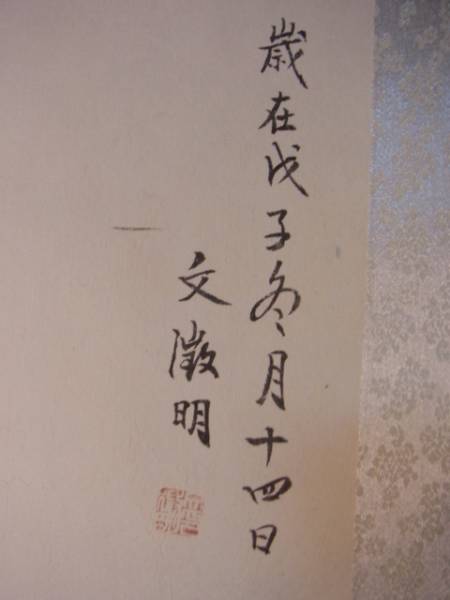 歳在戊子冬月十四日
文澂明